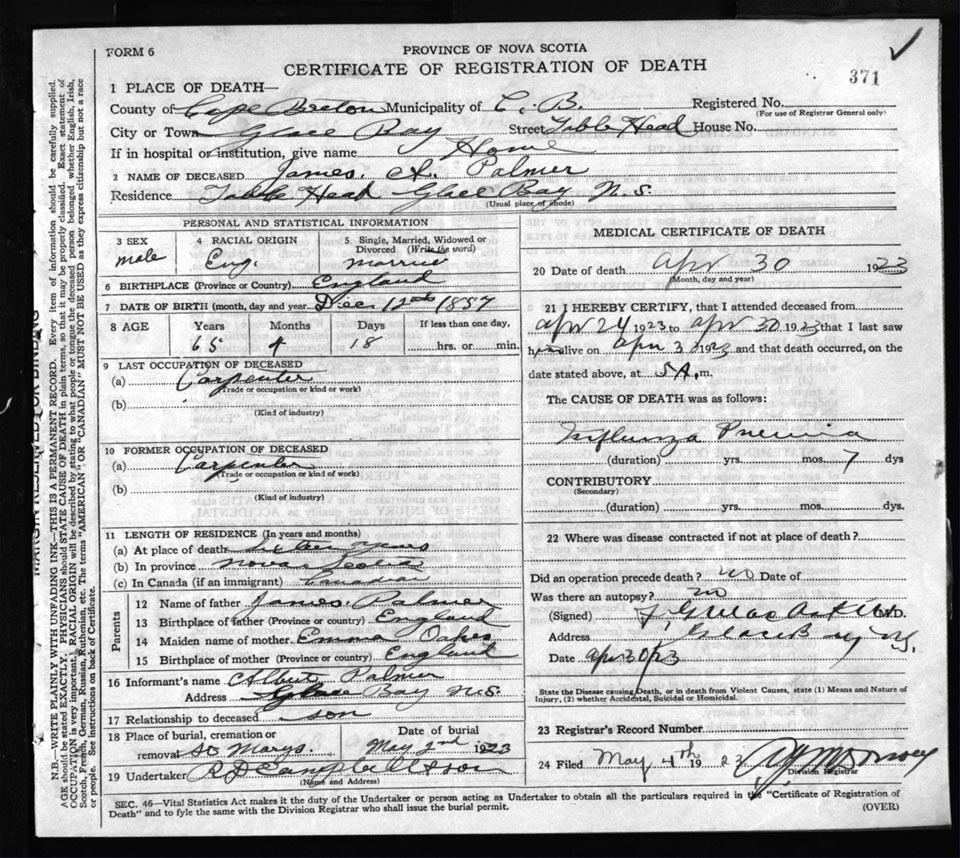 FORM 6
PROVINCE OF NOVA SCOTIA
CERTIFICATE OF REGISTRATION OF DEATH
371
1 PLACE OF DEATH—
County of Cape Breton Municipality of C. B. Registered No.
(For use of Registrar General only)
City or Town Glace Bay Street Table Head House No.
If in hospital or institution, give name Home
2 NAME OF DECEASED James. A. Palmer
Residence Table Head Glace Bay N.S.
(Usual place of abode)
PERSONAL AND STATISTICAL INFORMATION
3 SEX
male
4 RACIAL ORIGIN
Eng.
5 Single, Married, Widowed or Divorced (Write the word)
Married
6 BIRTHPLACE (Province or Country) England
7 DATE OF BIRTH (month, day and year) Dec 12th 1857
8 AGE Years Months Days If less than one day,
65 4 18 hrs. or min.
9 LAST OCCUPATION OF DECEASED
(a) Carpenter
(Trade or occupation or kind or work)
(b)
(Kind of industry)
10 FORMER OCCUPATION OF DECEASED
(a) Carpenter
(Trade or occupation or kind of work)
(b)
(Kind of industry)
11 LENGTH OF RESIDENCE (In years and months)
(a) At place of death years
(b) In province Nova Scotia
(c) In Canada (if an immigrant) Canadian
Parents
12 Name of father James. Palmer
13 Birthplace of father (Province or country) England
14 Maiden name of mother. Emma Oakes
15 Birthplace of mother (Province or country) England
16 Informant's name Albert Palmer
Address Glace Bay N.S.
17 Relationship to deceased son
18 Place of burial, cremation or removal St Marys. Date of burial May 2nd 1923
19 Undertaker
(Name and Address)
MEDICAL CERTIFICATE OF DEATH
20 Date of death Apr 30 1923
(Month, day and year)
21 I HEREBY CERTIFY, that I attended deceased from
Apr 24 1923 to Apr 30 1923 that I last saw
alive on Apr 3 1923 and that death occurred, on the
date stated above, at 5 A. m.
The CAUSE OF DEATH was as follows:
Influenza
(duration) yrs. mos. 7 dys
CONTRIBUTORY
(Secondary)
(duration) yrs. mos. dys.
22 Where was disease contracted if not at place of death?
Did an operation precede death? no Date of
Was there an autopsy? no
(Signed) M.D.
Address Glace Bay N.S.
Date Apr 30/23
State the Disease causing Death, or in death from Violent Causes, state (1) Means and Nature of
Injury, (2) whether Accidental, Suicidal or Homicidal.
23 Registrar's Record Number
24 Filed May 4th 1923
Division Registrar
SEC. 46—Vital Statistics Act makes it the duty of the Undertaker or person acting as Undertaker to obtain all the particulars required in the "Certificate of Registration of
Death" and to fyle the same with the Division Registrar who shall issue the burial permit.
(OVER)
MARGIN RESERVED FOR BINDING
N.B.—WRITE PLAINLY WITH UNFADING INK—THIS IS A PERMANENT RECORD. Every item of information should be carefully supplied.
AGE should be stated EXACTLY. PHYSICIANS should STATE CAUSE OF DEATH in plain terms, so that it may be properly classified. Exact statement of
OCCUPATION is very important. RACIAL ORIGIN will be described by stating to what people or tongue the deceased person belonged whether English, Irish,
Scotch, French, German, Russian, Ruthenian, etc. The terms "AMERICAN" OR "CANADIAN" MUST NOT BE USED as they express citizenship but not a race
or people. See instructions on back of Certificate.